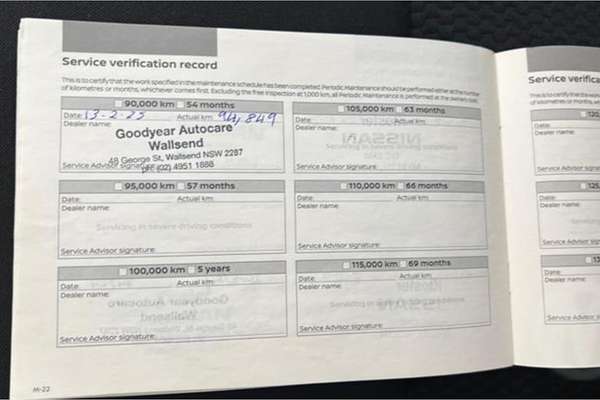 Service verification record
This is to certify that the work specified in the maintenance schedule has been completed. Periodic Maintenance should be performed either at the number
of kilometres or months, whichever comes first. Excluding the free inspection at 1,000 km, all Periodic Maintenance is performed at the owners cost.
90,000 km 54 months
Date: 13-2-25 Actual km: 94,849
Dealer name:
Goodyear Autocare
Wallsend
48 George St, Wallsend NSW 2287
ph: (02) 4951 1888
Service Advisor signature:
95,000 km 57 months
Date: Actual km:
Dealer name:
Servicing in severe driving conditions
Service Advisor signature:
100,000 km 5 years
Date: Actual km:
Dealer name:
Service Advisor signature:
105,000 km 63 months
Date: Actual km:
Dealer name:
Service Advisor signature:
110,000 km 66 months
Date: Actual km:
Dealer name:
Service Advisor signature:
115,000 km 69 months
Date: Actual km:
Dealer name:
Service Advisor signature:
M-22
Service verifica
This is to certify that the wo
of kilometres or months, wh
120,
Date:
Dealer name:
Service Advisor sign
125,
Date:
Dealer name:
Service Advisor sig
13
Date:
Dealer name:
Service Advisor s